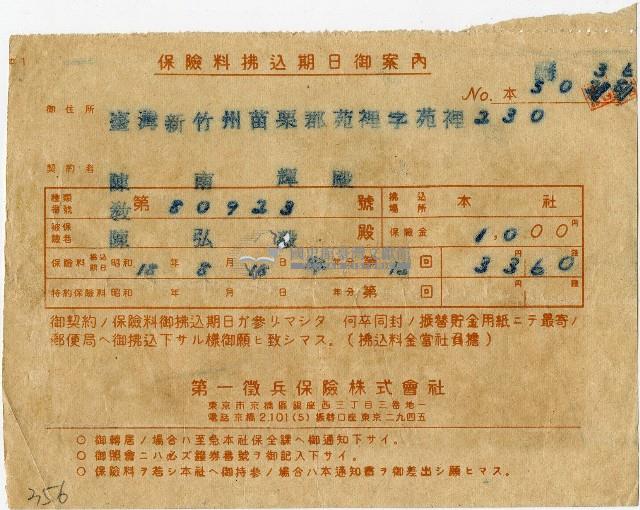 保險料拂込期日御案內
No. 本 50
御住所 臺灣新竹州苗栗郡苑裡字苑裡230
契約者 陳南輝殿
種類番號 教 第80923號 拂込場所 本社
被保險者 陳弘 殿 保險金 1,000円
保險料 拂込期日 昭和18年8月16日 年分第 回 3360
特約保險料 昭和 年 月 日 年分第 回
御契約ノ保險料御拂込期日ガ參リマシタ 何卒同封ノ振替貯金用紙ニテ最寄ノ
郵便局ヘ御拂込下サル樣御願ヒ致シマス。(拂込料金當社負擔)
第一徵兵保險株式會社
東京市京橋區銀座西三丁目三番地一
電話京橋2.101(5)振替口座東京二九四五
○ 御轉居ノ場合ハ至急本社保全課ヘ御通知下サイ。
○ 御照會ニハ必ズ證券番號ヲ御記入下サイ。
○ 保險料ヲ若シ本社ヘ御持參ノ場合ハ本通知書ヲ御差出シ願ヒマス。
356